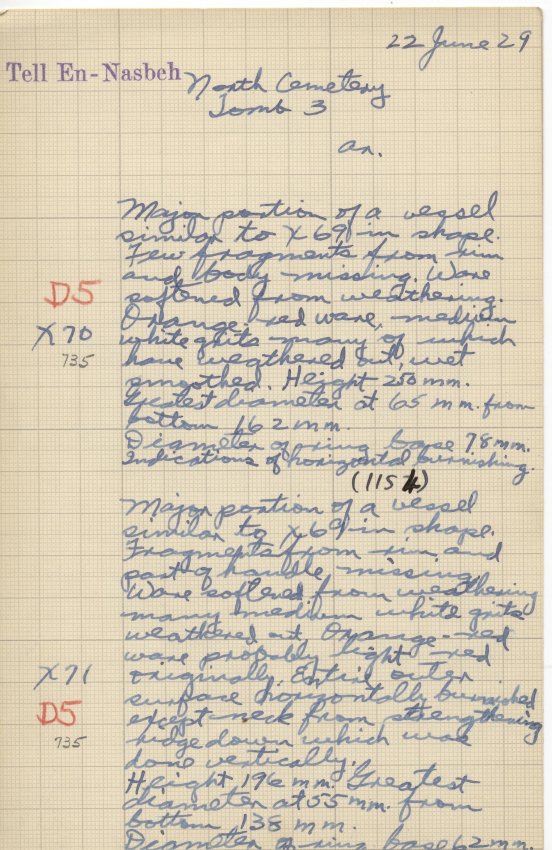 22 June 29
Tell En-Nasbeh
North Cemetery
Tomb 3
an.
Major portion of a vessel
similar to X69 in shape.
Few fragments from rim
and body missing. Ware
softened from weathering.
D5
Orange-red ware, medium
X70
white grits many of which
735
have weathered out, wet
smoothed. Height 250 mm.
Greatest diameter at 65 mm. from
bottom 162 mm.
Diameter of ring base 78 mm.
Indications of horizontal burnishing.
(115)
Major portion of a vessel
similar to X69 in shape.
Fragments from rim, and
part of handle missing.
Ware softened from weathering
many medium white grits
weathered out. Orange-red
ware probably light red
X71
originally. Entire outer
surface horizontally burnished
D5
except neck from strengthening
735
ridge down which was
done vertically.
Height 196 mm. Greatest
diameter at 55 mm. from
bottom 138 mm.
Diameter of ring base 62 mm.